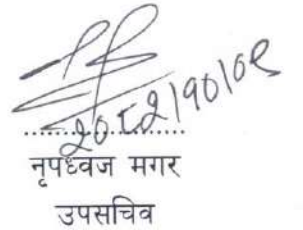 २०८२।१०।०९
नृपध्वज मगर
उपसचिव